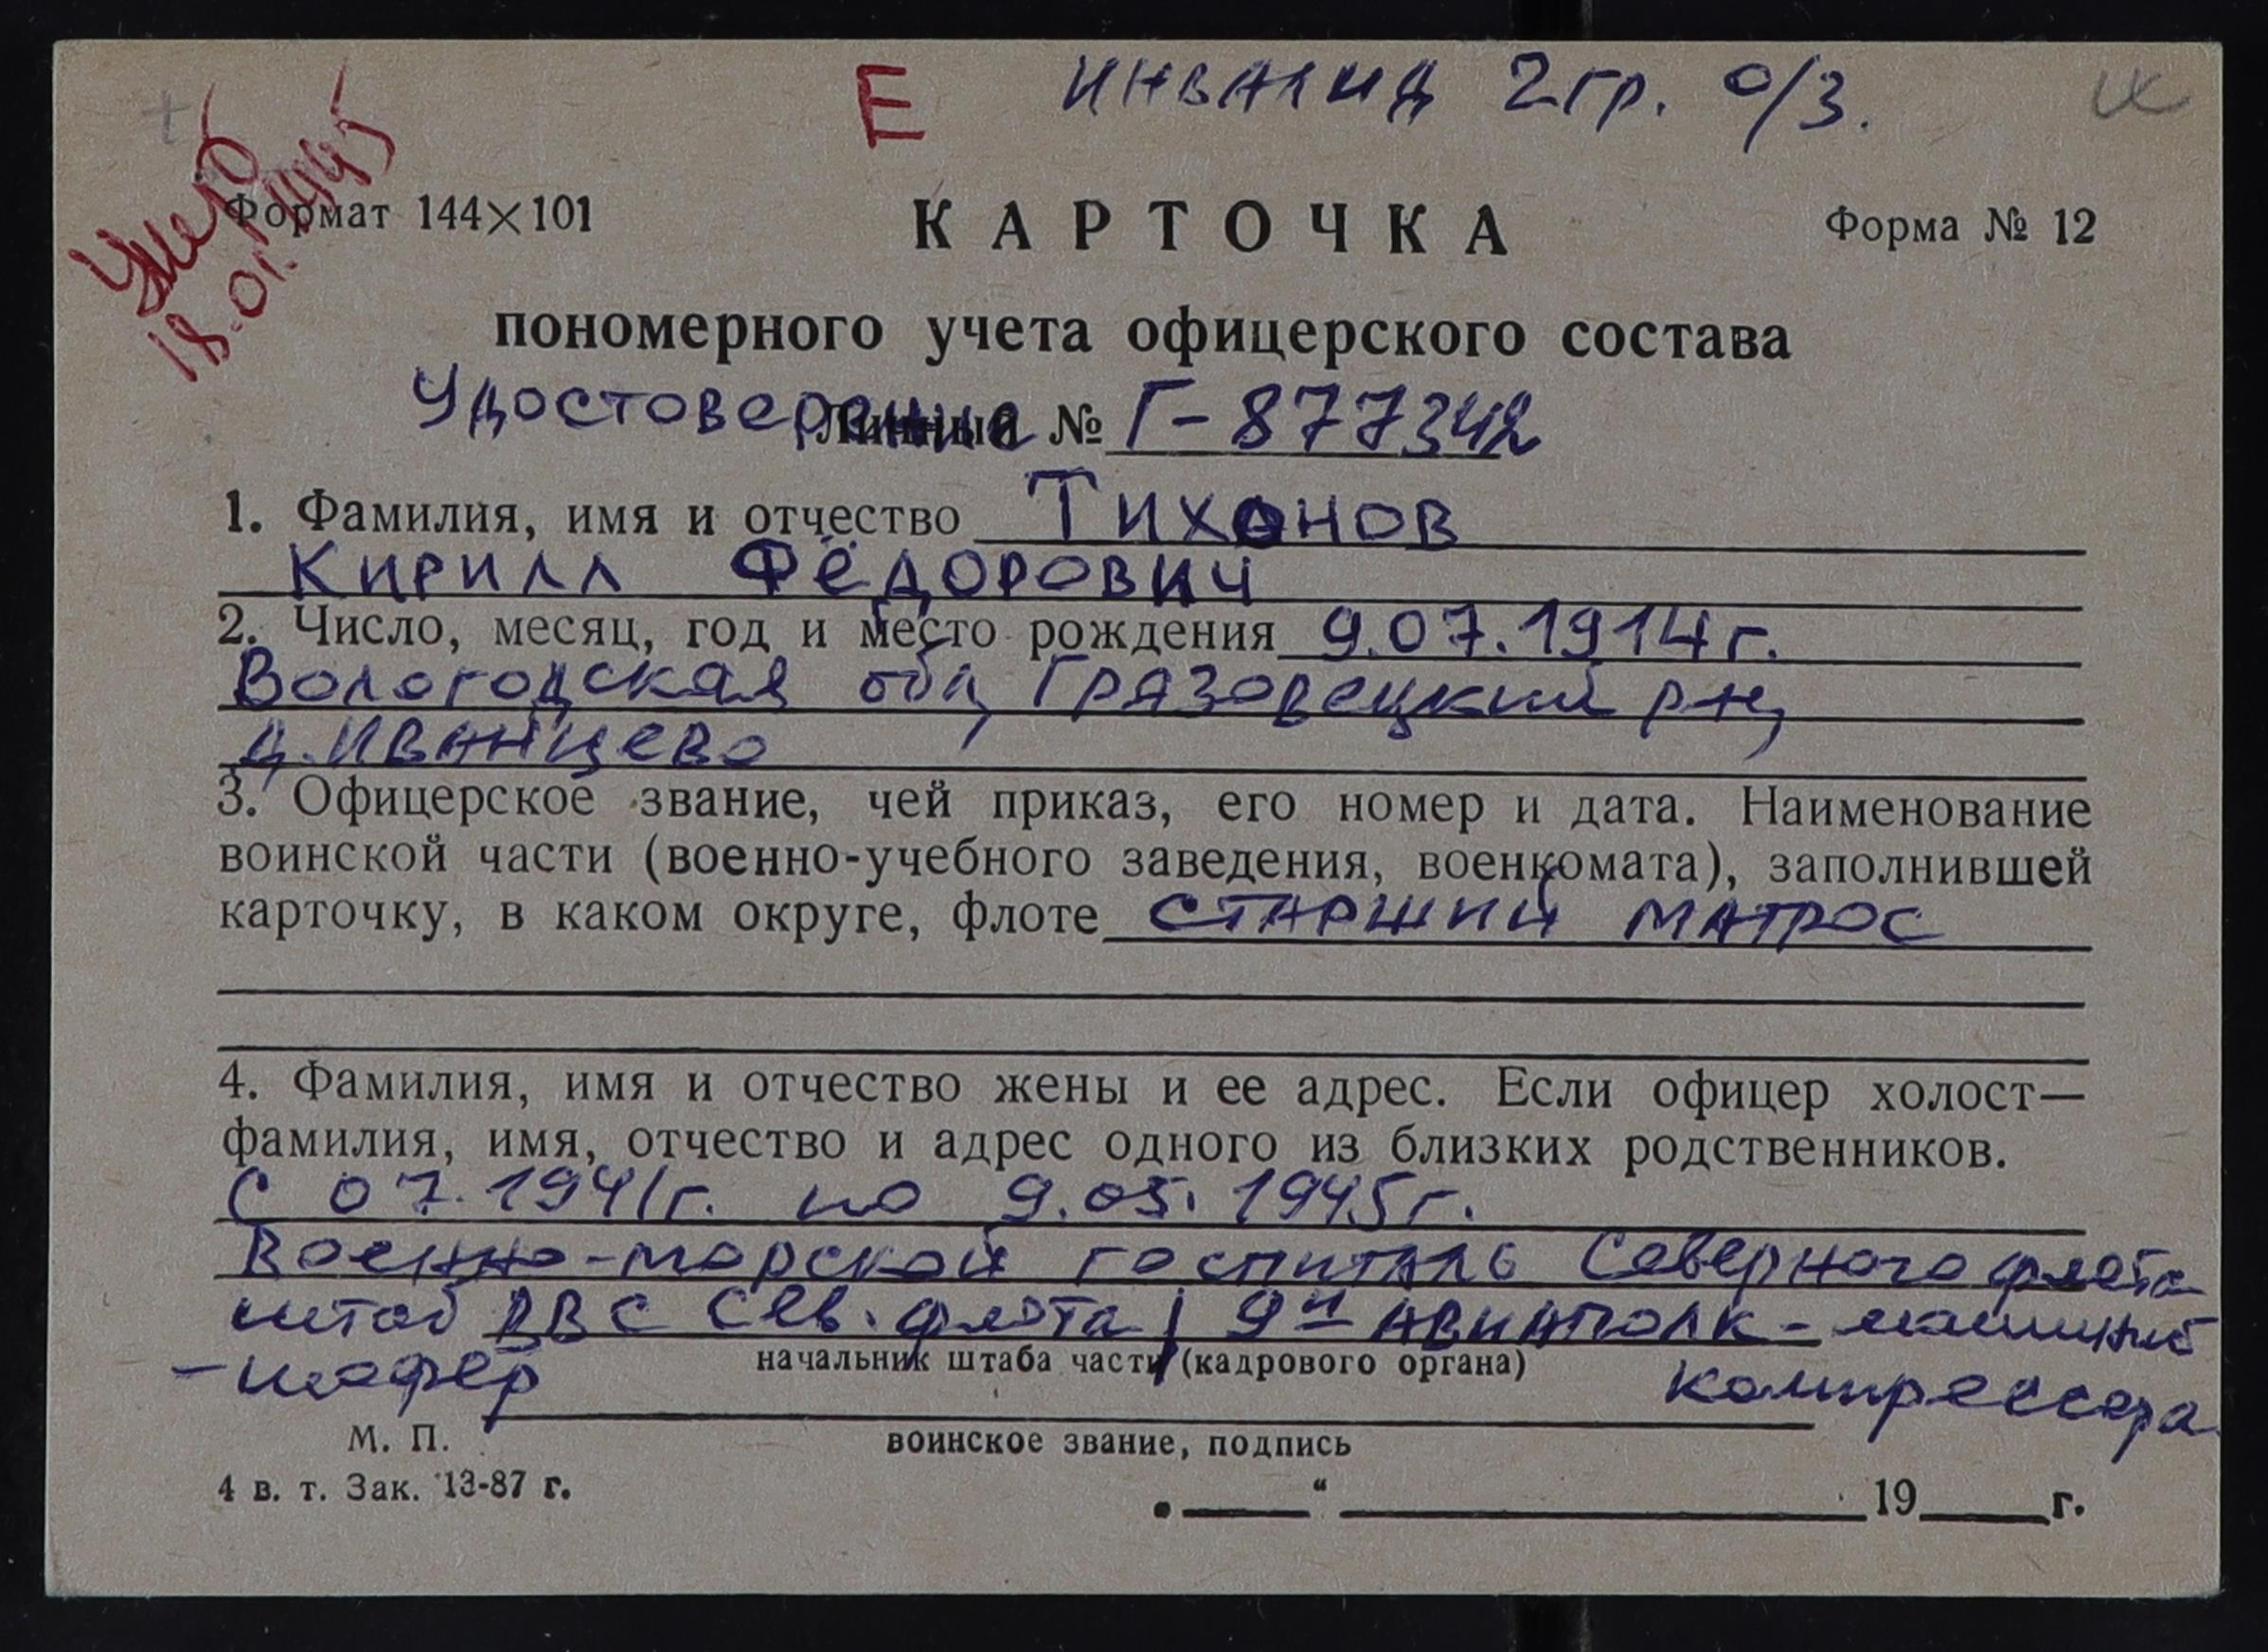 Е инвалид 2 гр. о/з.
Умер
18.01.
Формат 144×101
КАРТОЧКА
Форма № 12
пономерного учета офицерского состава
Удостоверение Личный № Г-877342
1. Фамилия, имя и отчество Тихонов
Кирилл Фёдорович
2. Число, месяц, год и место рождения 9.07.1914 г.
Вологодская обл, Грязовецкий р-н,
д. Иванцево
3. Офицерское звание, чей приказ, его номер и дата. Наименование
воинской части (военно-учебного заведения, военкомата), заполнившей
карточку, в каком округе, флоте старший матрос
4. Фамилия, имя и отчество жены и ее адрес. Если офицер холост—
фамилия, имя, отчество и адрес одного из близких родственников.
С 07.1941г. по 9.05.1945г.
Военно-морской госпиталь Северного флота
штаб ВВС Сев. флота, 9й авиаполк - машинист
- шофер
начальник штаба части (кадрового органа)
компрессора
М. П.
воинское звание, подпись
4 в. т. Зак. 13-87 г.
„ “ 19 г.